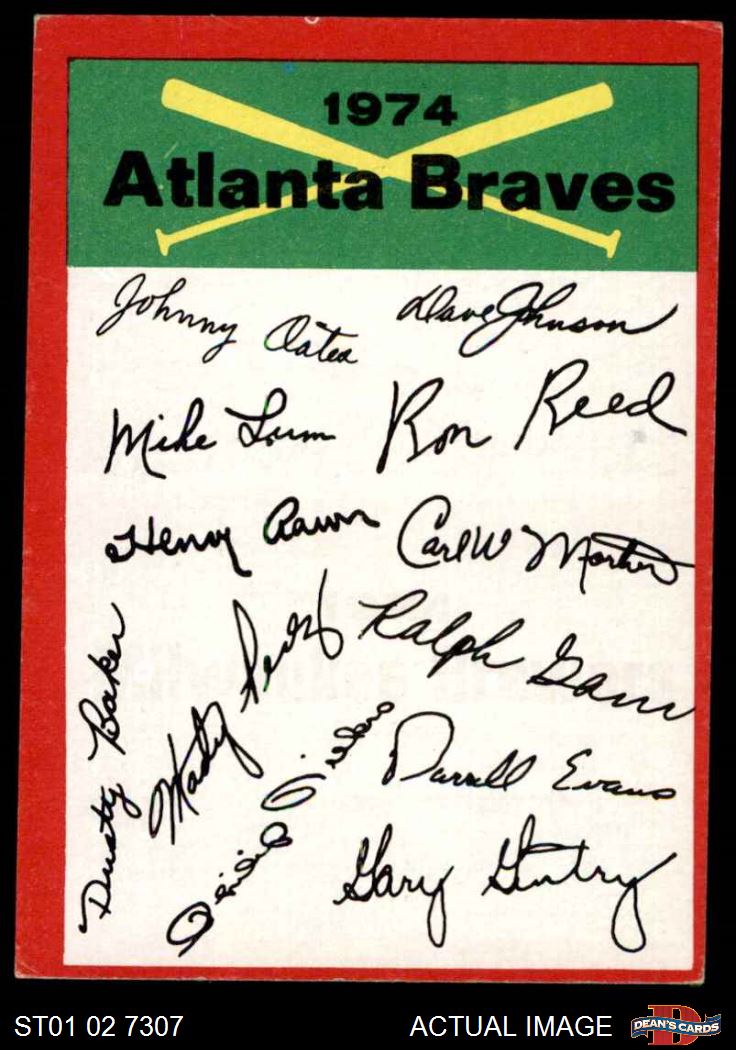 1974
Atlanta Braves
Johnny Oates
Dave Johnson
Mike Lum
Ron Reed
Henry Aaron
Carl W Morton
Dusty Baker
Marty Perez
Ralph Garr
Darrell Evans
Gary Gentry
ST01 02 7307
ACTUAL IMAGE
DEAN'S CARDS